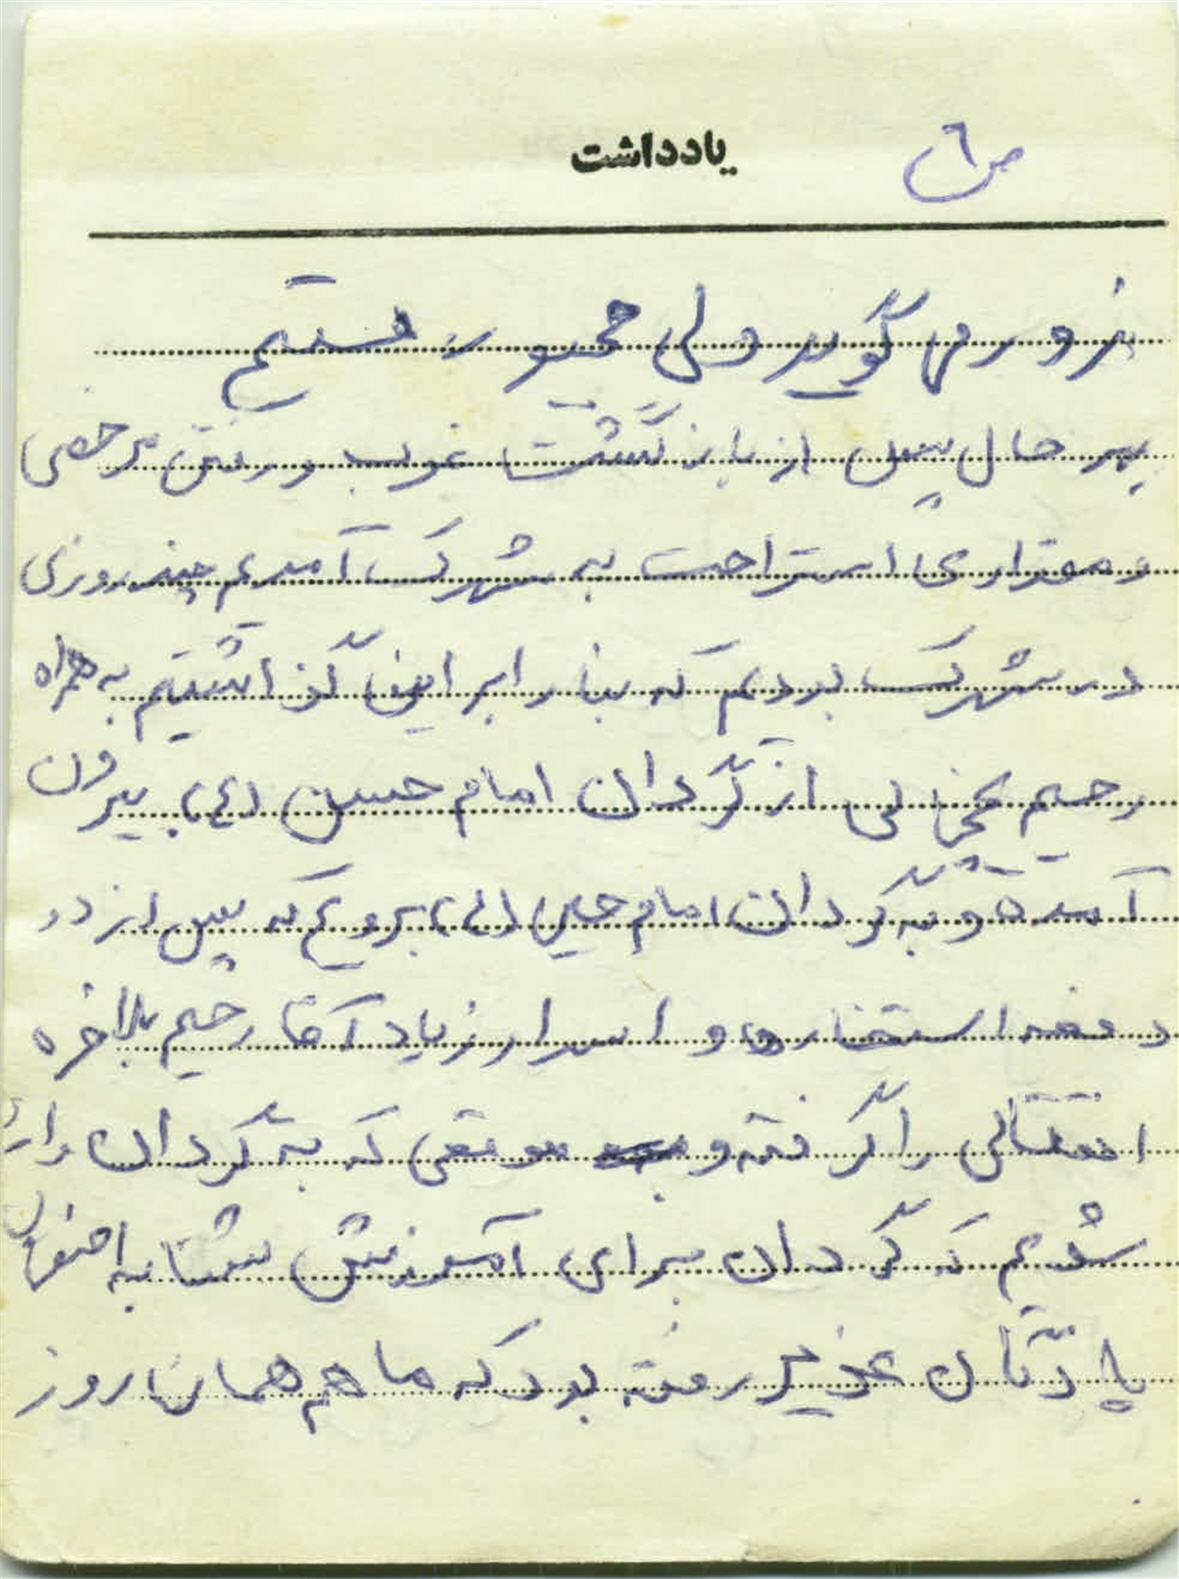 یادداشت
ص ٦
می گوید ولی مجبور هستیم
بهر حال پس از بازگشت غرب و رفتن مرخصی
و مقداری استراحت به شهرک آمدیم چند روزی
در شهرک بودیم که بنا را بر این گذاشتیم به همراه
رحیم از گردان امام حسن (ع) بیرون
آمده و به گردان امام حسین (ع) برویم که پس از دو
دفعه استخاره و اسرار زیاد آقا رحیم بلاخره
انتقالی را گرفته و موقعی که به گردان وارد
شدیم که گردان برای آموزش شنا به اصفهان
پادگان غدیر رفته بود که ما هم همان روز